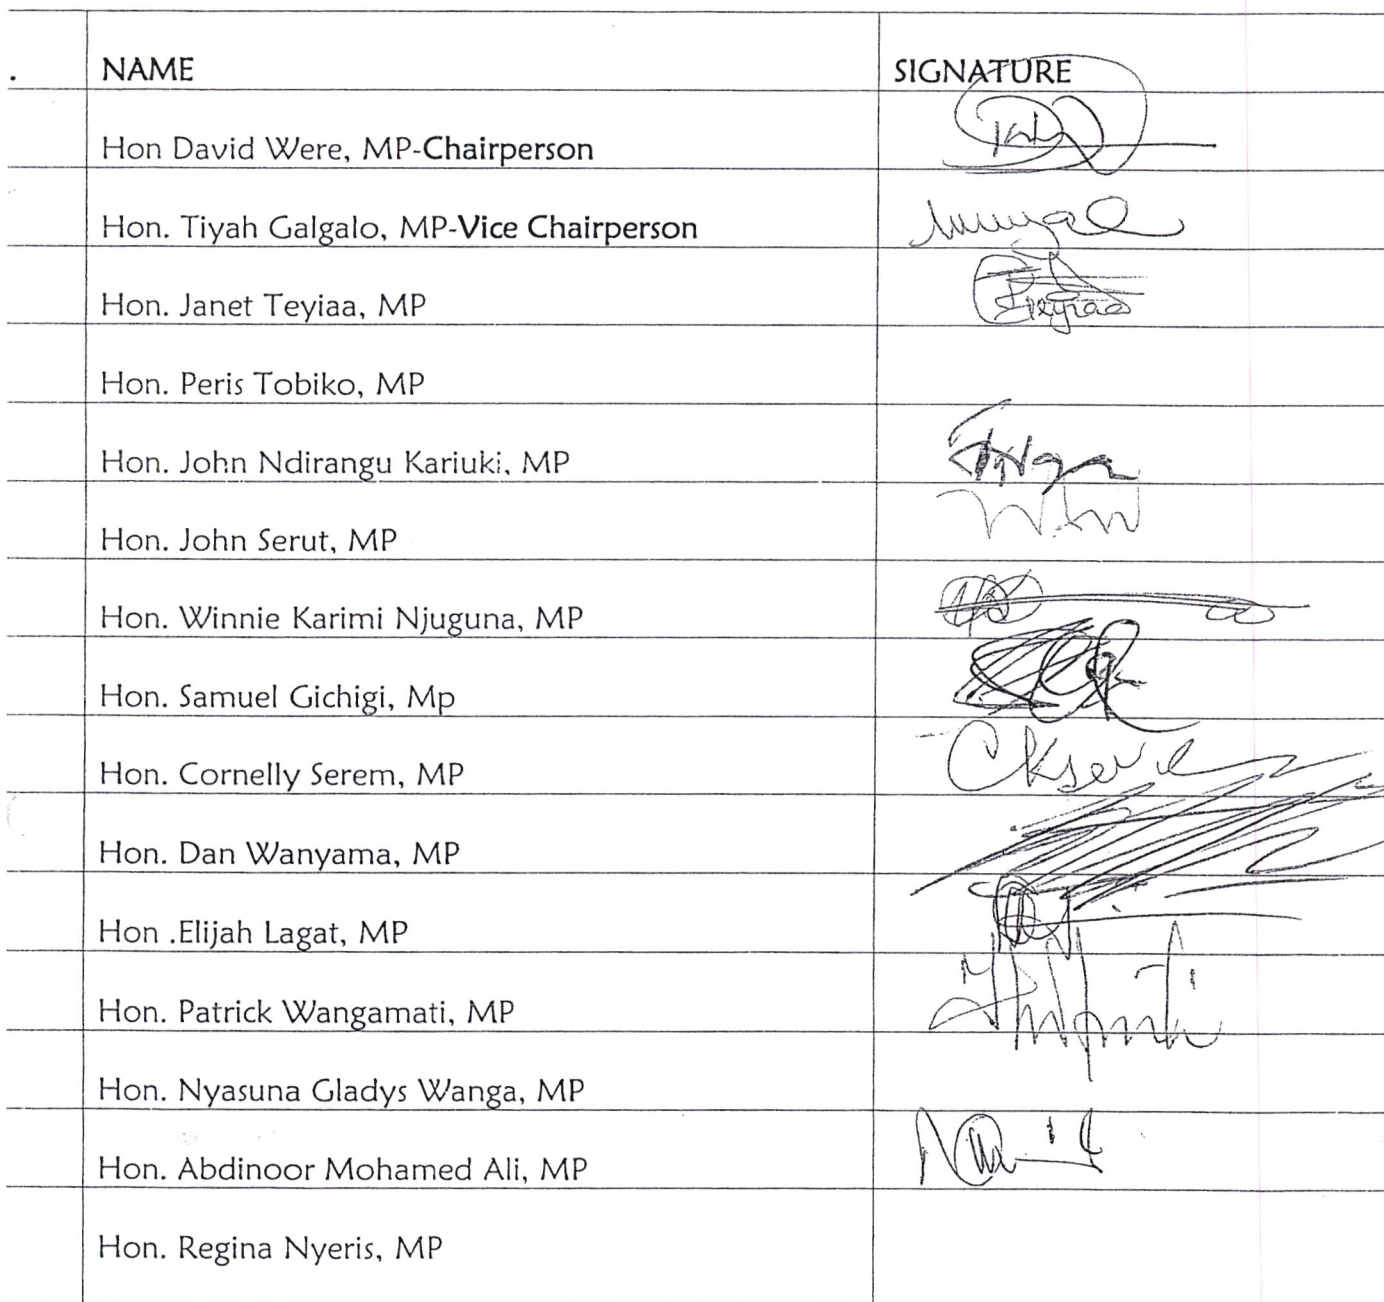 . NAME SIGNATURE
Hon David Were, MP-Chairperson
Hon. Tiyah Galgalo, MP-Vice Chairperson
Hon. Janet Teyiaa, MP
Hon. Peris Tobiko, MP
Hon. John Ndirangu Kariuki, MP
Hon. John Serut, MP
Hon. Winnie Karimi Njuguna, MP
Hon. Samuel Gichigi, Mp
Hon. Cornelly Serem, MP
Hon. Dan Wanyama, MP
Hon .Elijah Lagat, MP
Hon. Patrick Wangamati, MP
Hon. Nyasuna Gladys Wanga, MP
Hon. Abdinoor Mohamed Ali, MP
Hon. Regina Nyeris, MP